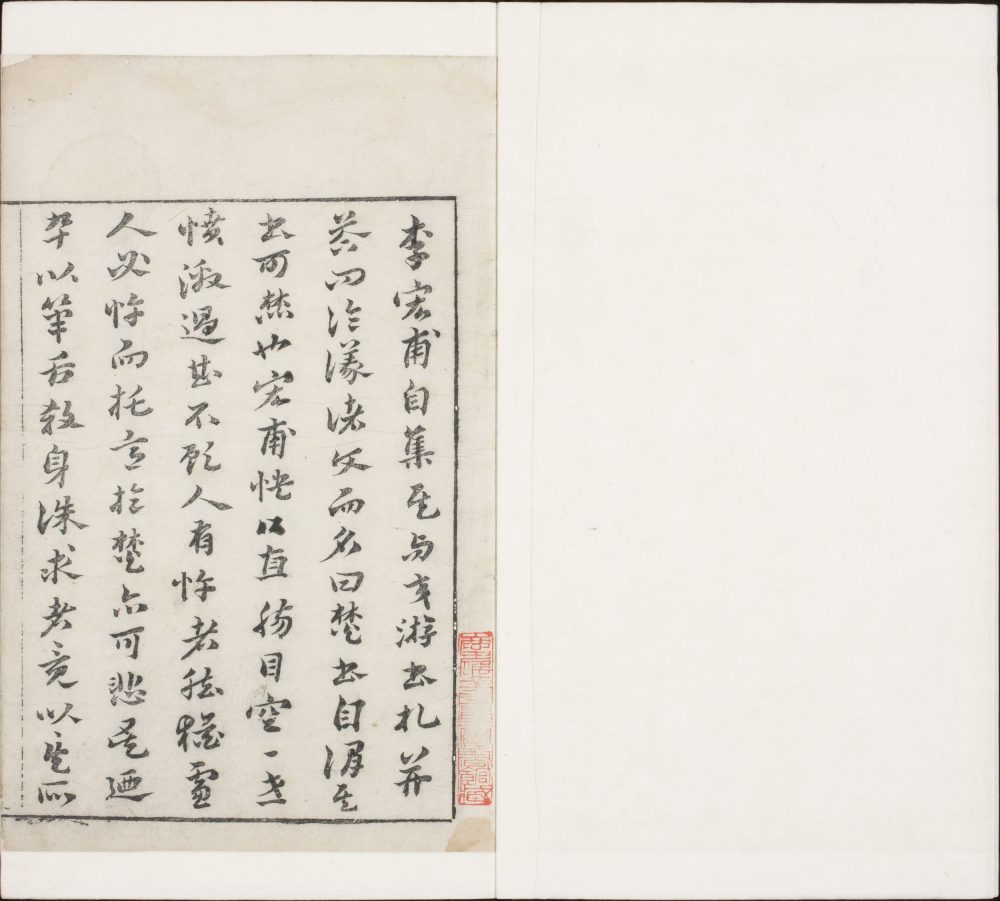 李宏甫自集其與友游書札并
答問論議諸文而名曰焚書自謂其
書可焚也宏甫快口直腸目空一世
憤激過甚不顧人有忤者然猶慮
人必忤而托言於焚亦可悲矣迺
卒以筆舌殺身誅求者竟以其所